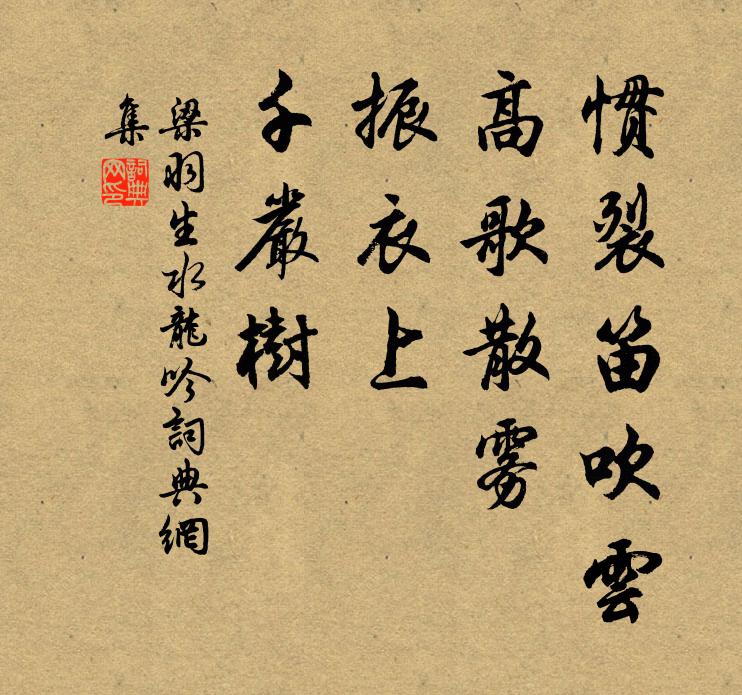 惯裂笛吹雲
高歌散雾
振衣上
千嚴樹
梁羽生水龍吟詞典網
集
詞典
网印